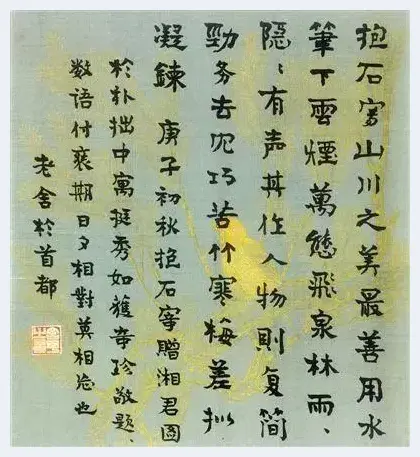 抱石寫山川之美最善用水
筆下雲煙萬態飛泉林雨、
隱、有声其作人物則复简
勁务去冗巧苦竹寒梅差拟
凝鍊 庚子初秋抱石寫贈湘君図
於朴拙中寓挺秀如獲奇珍敬題、
数语付裱期日夕相對莫相忘也
老舍於首都